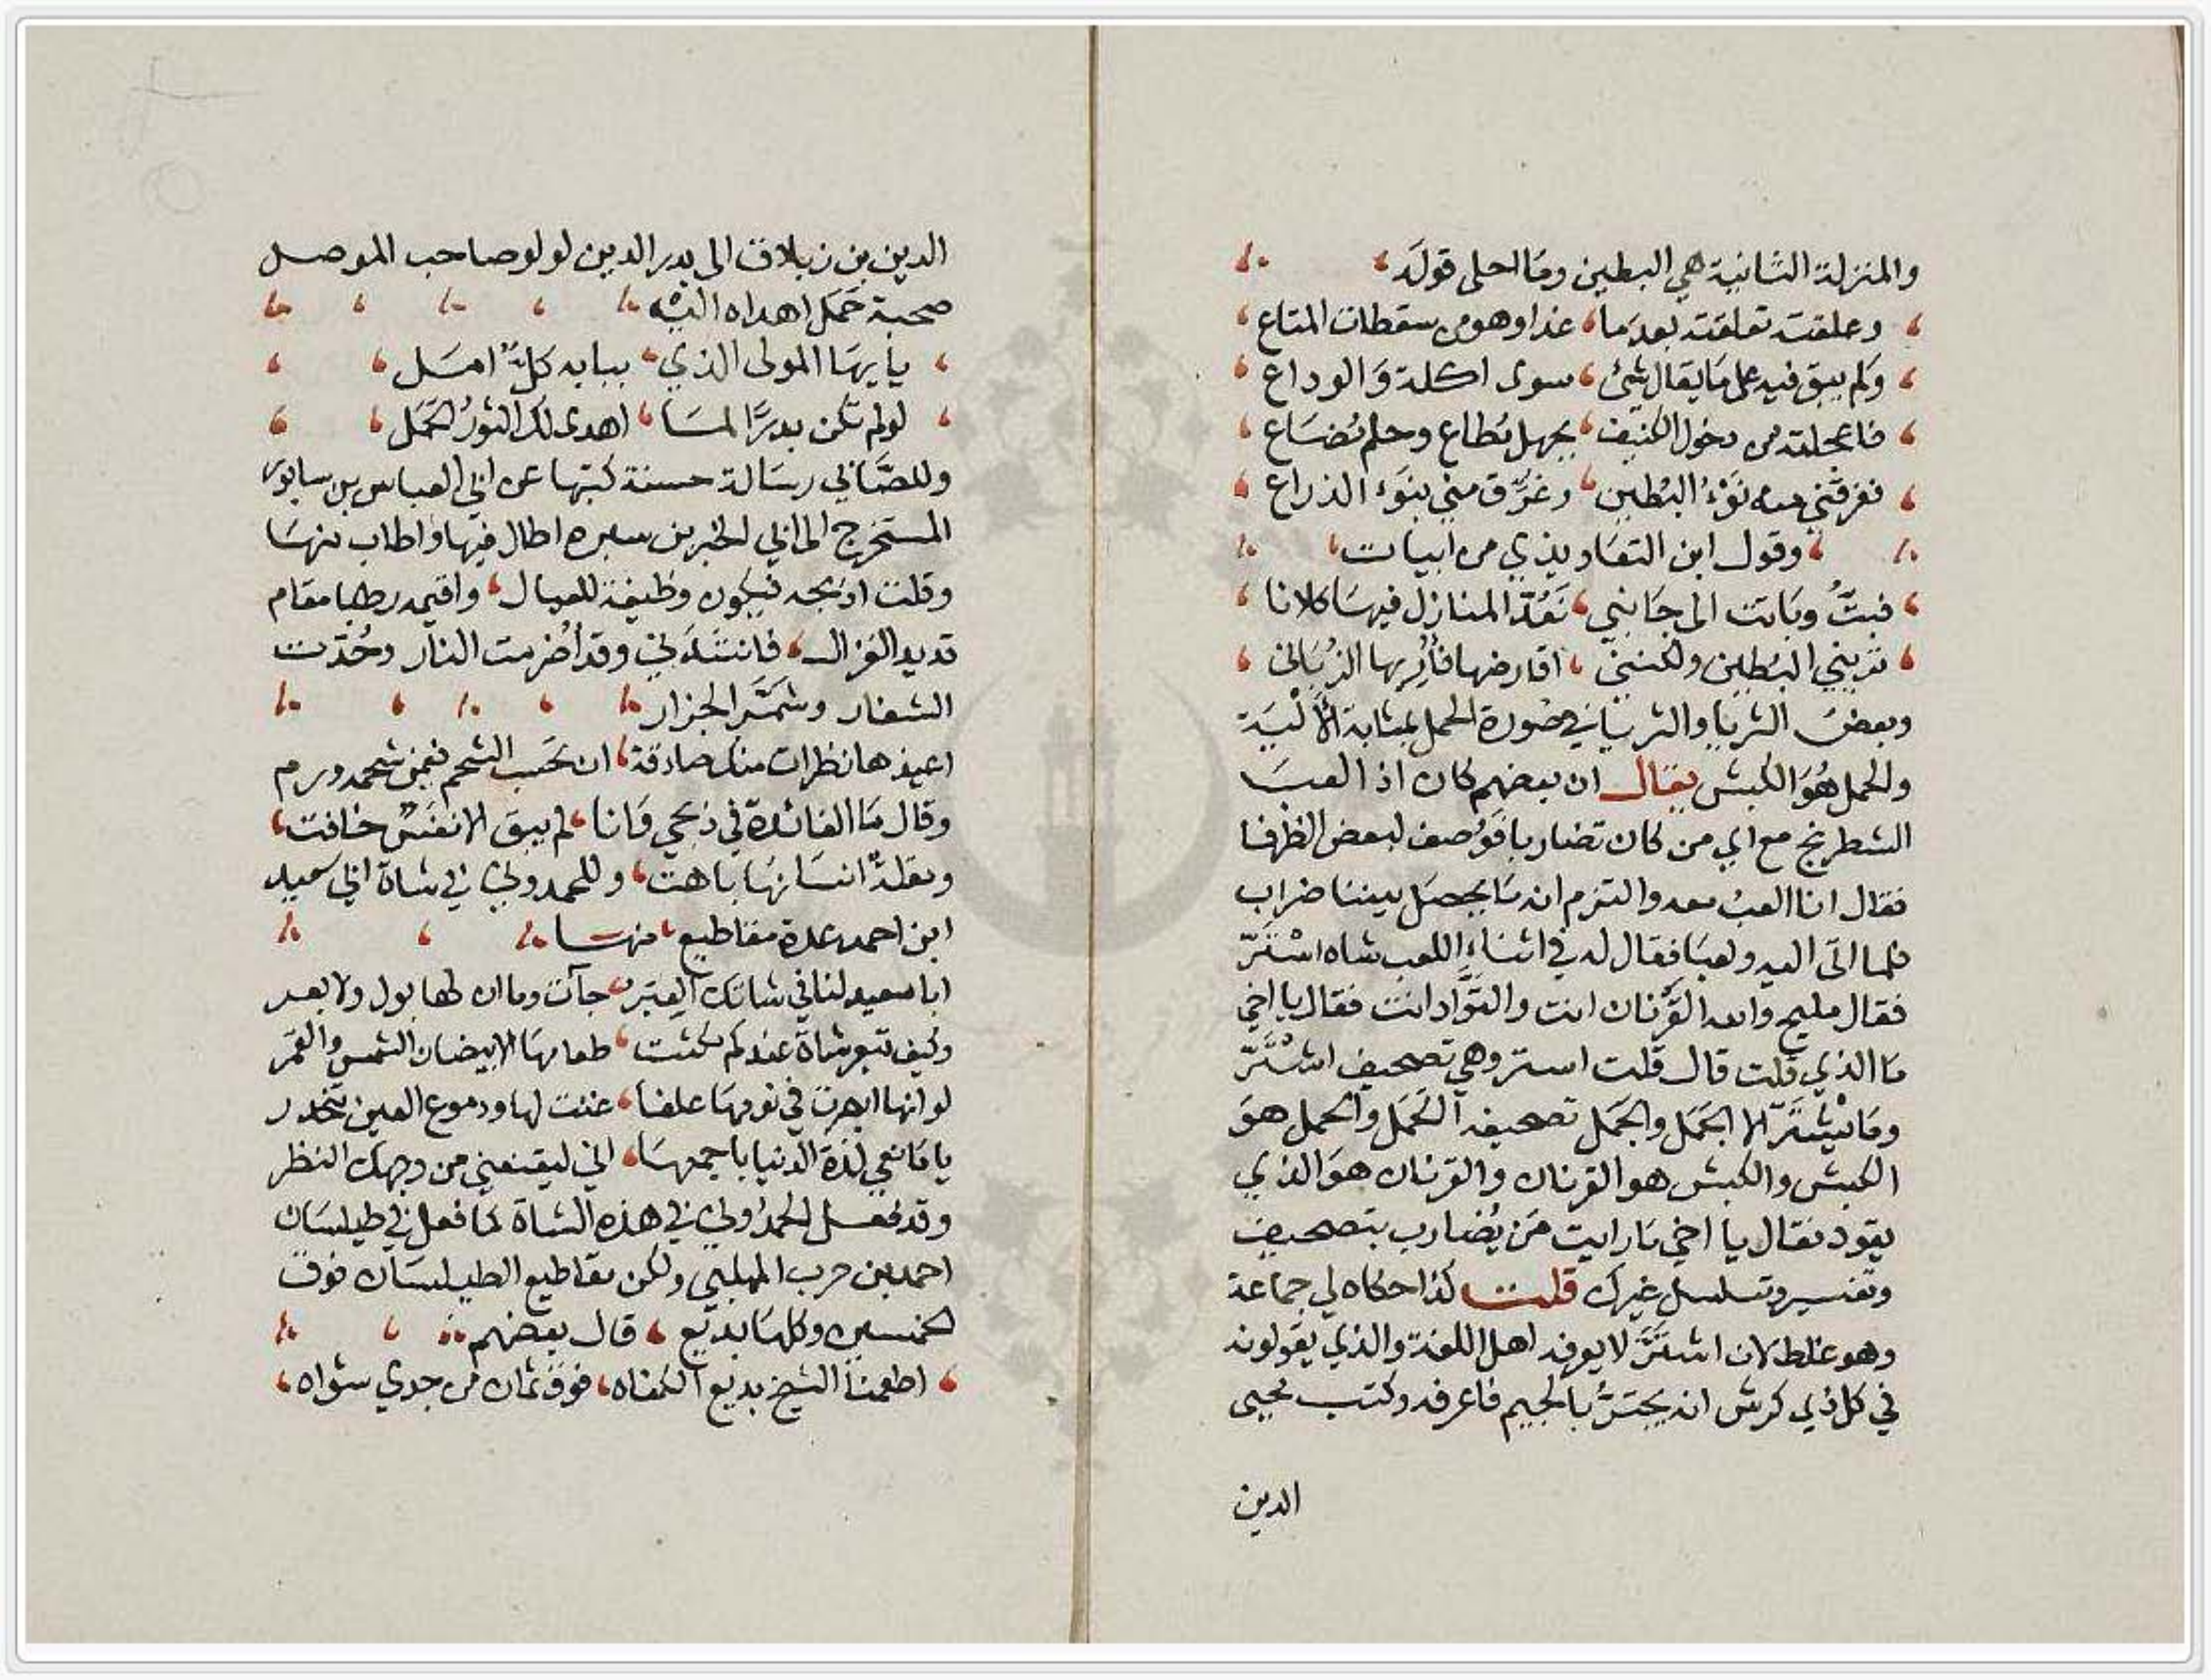 والمنزلة الثانية هي البطين وما احلى قوله
وعلقت تعلقته بعدما، غدا وهو من سقطات المتاع
ولم يبق فيه على ما يقال شئ، سوى اكلة والوداع
فاعجلته من دخول الكنيف، بجهل يُطاع وحلم يُضاع
فغرقني منه نَوْءُ البُطين، وغرّق مني بنوء الذراع
وقول ابن التعاويذي من ابيات
فبتُّ وباتت الى جانبي، نَعُدّ المنازل فيها كلانا
تريني البُطين ولكنني، اقارضها فأُريها الزُبانى
وبعض الثريا والثريا في صورة الحمل بمثابة الألْيَة
والحمل هُوَ الكبش يقال ان بعضهم كان اذا لعب
الشطرنج مع اي من كان تضاربا فوُصف لبعض الظرفا
فقال انا العبُ معه والتزم انه ما يحصل بيننا ضراب
فلما اتى اليه ولعبا فقال له في اثناء اللعب شاه اسْتَرّ
فقال مليح والله القَرْنان انت والقوّاد انت فقال يا اخي
ما الذي قلت قال قلت استر وهي تصحيف اشْتَرّ
وما يَشْتَرّ الا الجَمَل والجَمَل تصحيفه الحَمَل والحمل هو
الكبش والكبش هو القرنان والقرنان هو الذي
يقود فقال يا اخي ما رايت مَن يُضارب بتصحيف
وتفسير وتسلسل غيرك قلت كذا حكاه لي جماعة
وهو غلط لان اشتَرَّ لا يعرفه اهل اللغة والذي يقولونه
في كل ذي كرش انه يجتَرُّ بالجيم فاعرفه وكتب محيى
الدين
الدين بن زبلاق الى بدر الدين لولو صاحب الموصل
صحبة حَمَل اهداه اليه
يا ايها المولى الذي، ببابه كلٌّ امل
لو لم تكن بدرًا لما، اهدى لك الثورُ الحَمَل
وللصّابي رسالة حسنة كتبها عن ابي العباس بن سابور
المستخرج الى ابي الخير بن سبره اطال فيها واطاب منها
وقلت اذبحه فيكون وظيفة للعيال، واقيمه رطبا مقام
قديد الغزال، فانشدني وقد أُضرمت النار وحُدّت
الشفار وشَمّر الجزار
اعيذها نظرات منك صادقة، ان تحسب الشحم فيمن شحمه ورم
وقال ما الفائدة في ذبحي وانا، لم يبق الا نفَسٌ خافت،
ومقلةٌ انسانها باهت، وللحمدوني في شاة ابي سعيد
ابن احمد عدة مقاطيع، منها
ابا سعيد لنا في شاتك العِبَر، جآت وما ان لها بول ولا بعر
وكيف تبعر شاة عندكم مكثت، طعامها الابيضان الشمس والقمر
لو انها ابصرت في نومها علفا، غنت لها ودموع العين تنحدر
يا مانعي لذة الدنيا باجمعها، اني ليقنعني من وجهك النظر
وقد فعل الحمدُوني في هذه الشاة كما فعل في طيلسان
احمد بن حرب المهلبي ولكن مقاطيع الطيلسان فوق
الخمسين وكلها بديع، قال بعضهم
اطعمنا الشيخ بديع الكفاه، فوق ثمان من جدي شواه،